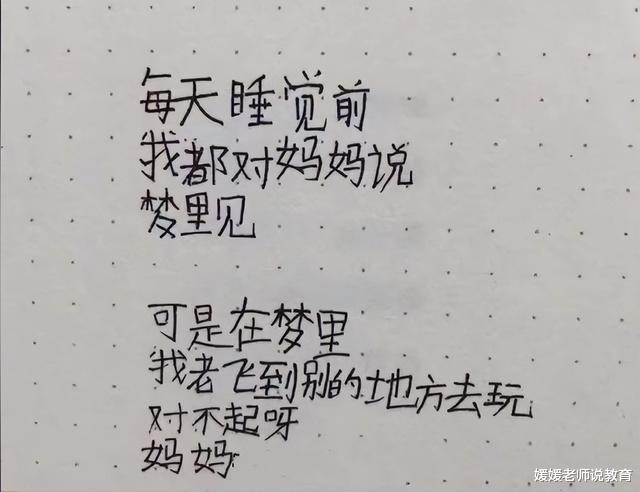 每天睡觉前
我都对妈妈说
梦里见
可是在梦里
我老飞到别的地方去玩
对不起呀
妈妈
媛媛老师说教育